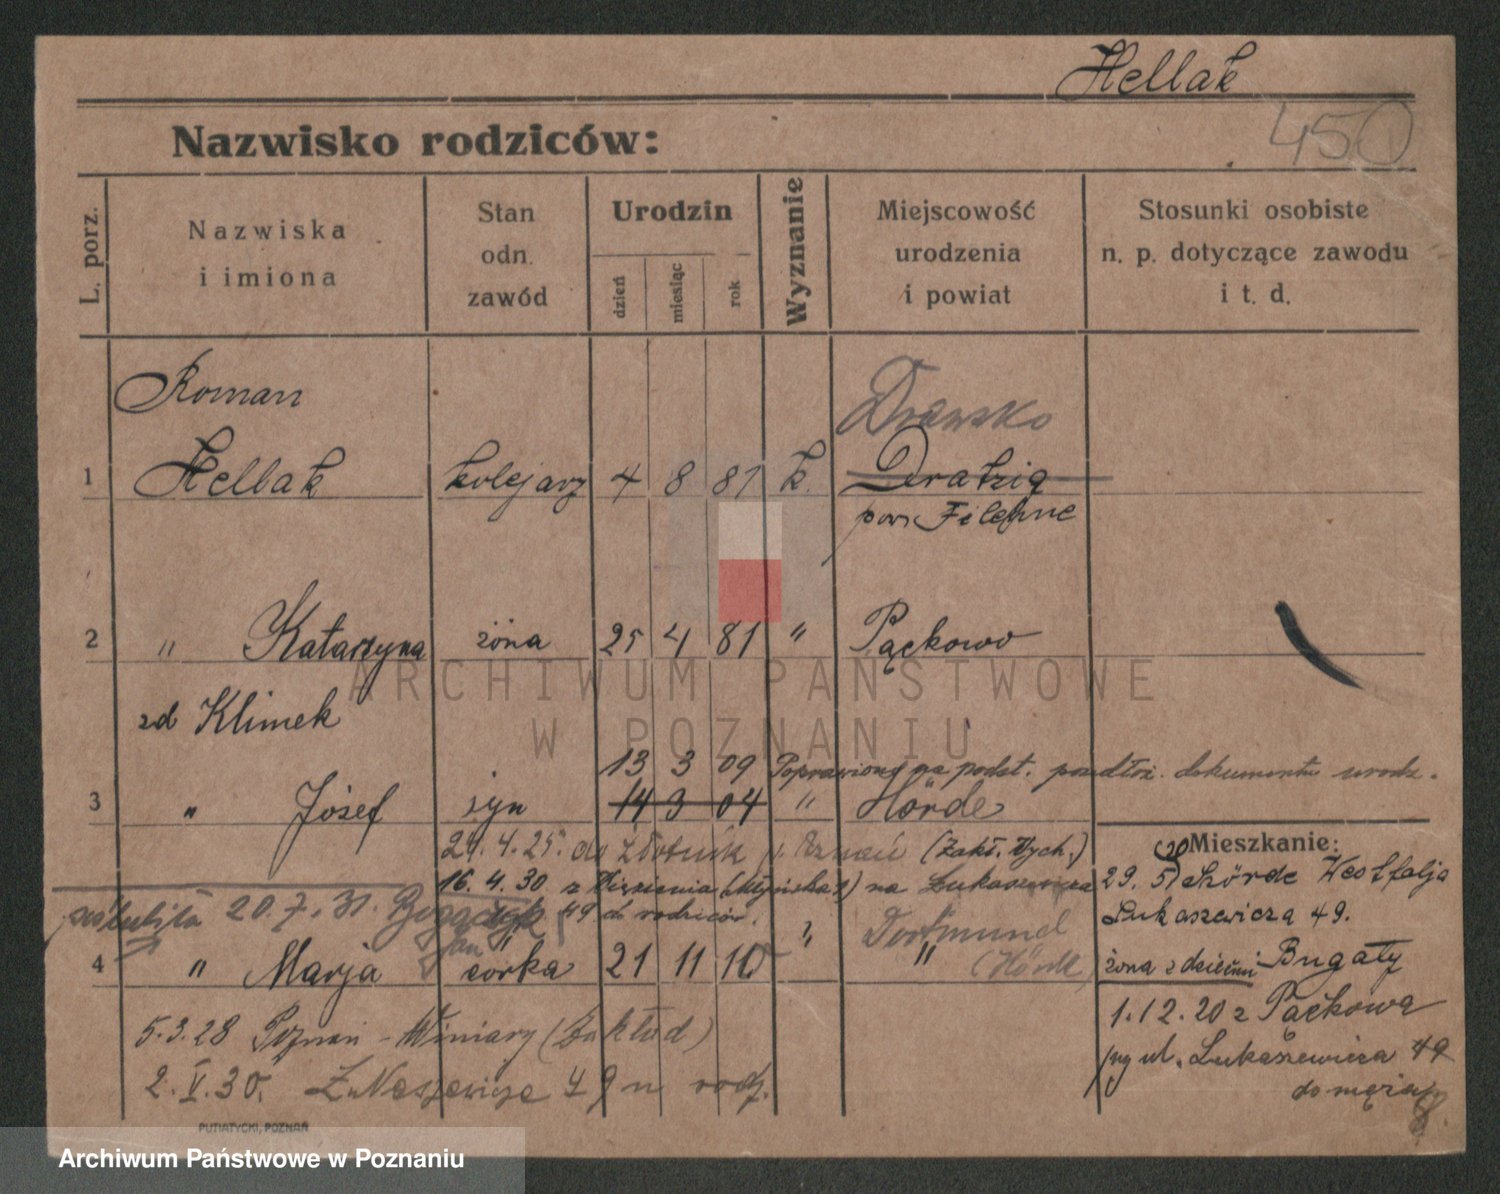 Hellak
450
Nazwisko rodziców:
L. porz.
Nazwiska
i imiona
Stan
odn.
zawód
Urodzin
dzień
miesiąc
rok
Wyznanie
Miejscowość
urodzenia
i powiat
Stosunki osobiste
n. p. dotyczące zawodu
i t. d.
Roman
Drawsko
1 Hellak kolejarz 4 8 81 k. Dratzig
pow. Filehne
2 " Katarzyna żona 25 4 81 " Pąckowo
zd Klimek
13 3 09 Poprawiono na podst. przedłoż. dokumentu urodz.
3 " Józef syn 14 3 04 " Hörde
24.4.25. do (Zakł. Wych.)
16.4.30 z Więzienia na Łukaszewicza
49 do rodziców.
20.7.31.
Dortmund
4 " Marja corka 21 11 10 " "
(Hörde)
5.3.28 Poznań - Winiary (Zakład)
2.V.30. 49 rodz.
Mieszkanie:
29. 5 Hörde Westfalja
Łukaszewicza 49.
żona z dziećmi Bugaty
1.12.20 z Pąckowa
ul. Łukaszewicza 49
do męża
PUTIATYCKI, POZNAŃ
ARCHIWUM PAŃSTWOWE
W POZNANIU
Archiwum Państwowe w Poznaniu